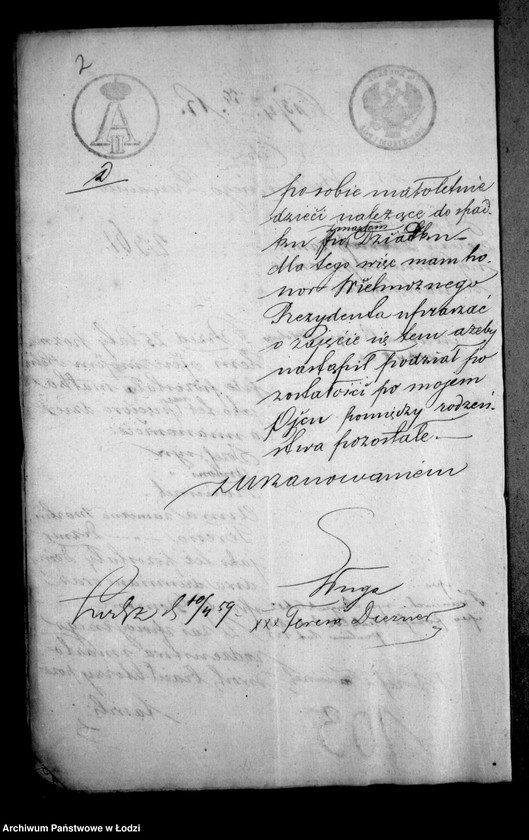 2
A
II
2
po sobie małoletnie
dzieci należące do spad-
ku po zmarłem Dziadku
dla tego więc mam ho-
nor Wielmożnego
Prezydenta upraszać
o zajęcie się tem ażeby
nastąpił podział po
zostałości po mojem
Ojcu pomiędzy rodzeń-
stwa pozostałe.
z uszanowaniem
Sługa
Łódź d. 10/4 59.
xxx Teresa Diezner
Archiwum Państwowe w Łodzi